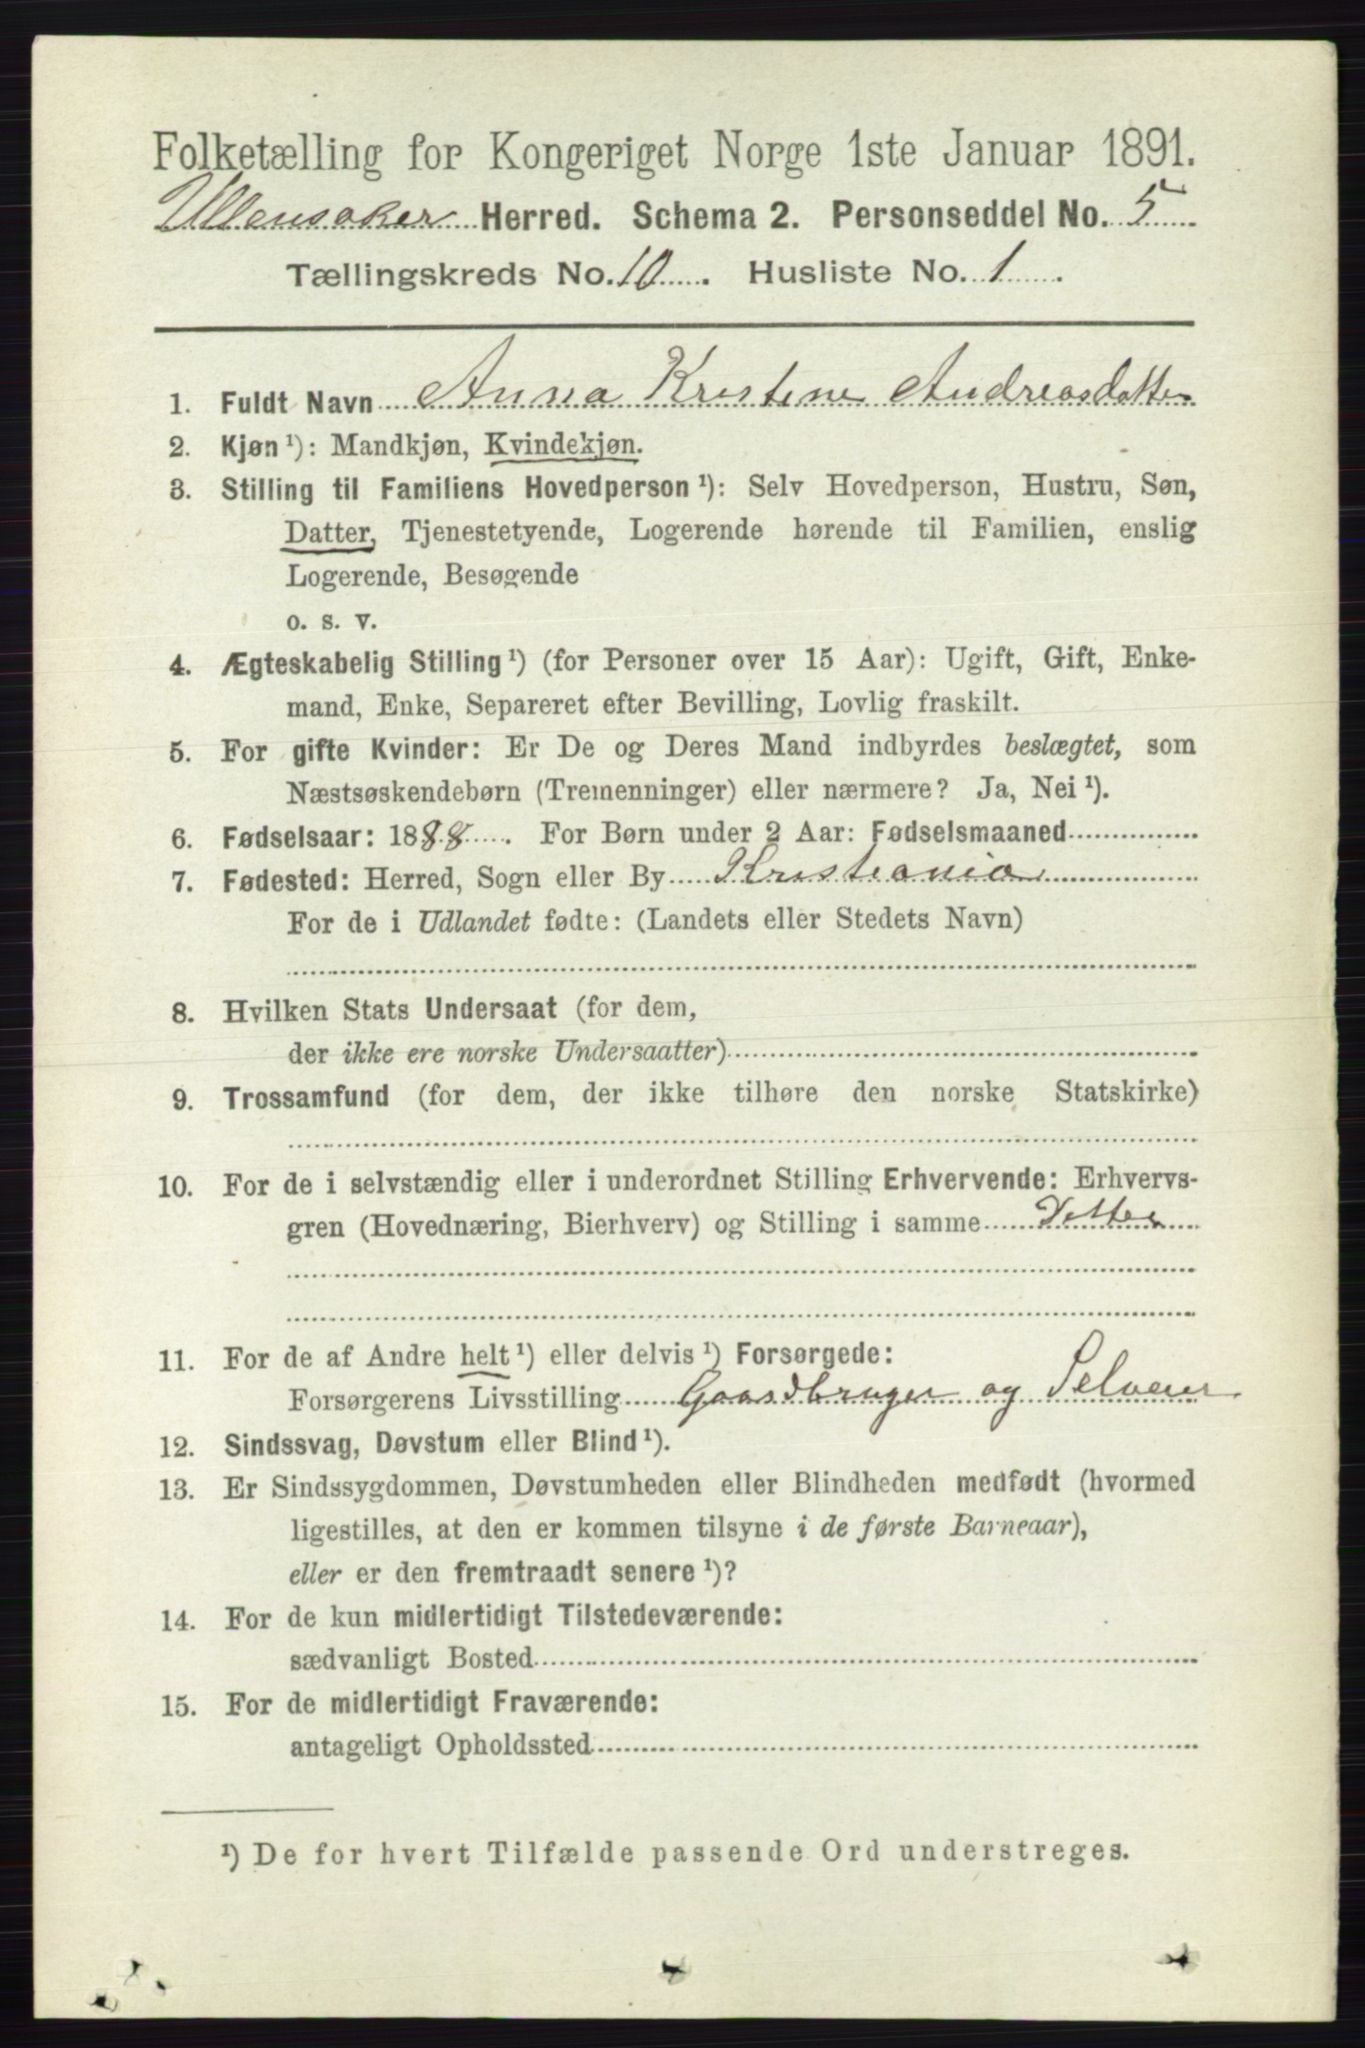 Folketælling for Kongeriget Norge 1ste Januar 1891.
Ullensaker Herred. Schema 2. Personseddel No. 5
Tællingskreds No. 10. Husliste No. 1.
1. Fuldt Navn Anna Kristine Andreasdatter
2. Kjøn ¹): Mandkjøn, Kvindekjøn.
3. Stilling til Familiens Hovedperson ¹): Selv Hovedperson, Hustru, Søn,
Datter, Tjenestetyende, Logerende hørende til Familien, enslig
Logerende, Besøgende
o. s. v.
4. Ægteskabelig Stilling ¹) (for Personer over 15 Aar): Ugift, Gift, Enke-
mand, Enke, Separeret efter Bevilling, Lovlig fraskilt.
5. For gifte Kvinder: Er De og Deres Mand indbyrdes beslægtet, som
Næstsøskendebørn (Tremenninger) eller nærmere? Ja, Nei ¹).
6. Fødselsaar: 1888. For Børn under 2 Aar: Fødselsmaaned
7. Fødested: Herred, Sogn eller By Kristiania
For de i Udlandet fødte: (Landets eller Stedets Navn)
8. Hvilken Stats Undersaat (for dem,
der ikke ere norske Undersaatter)
9. Trossamfund (for dem, der ikke tilhøre den norske Statskirke)
10. For de i selvstændig eller i underordnet Stilling Erhvervende: Erhvervs-
gren (Hovednæring, Bierhverv) og Stilling i samme Datter
11. For de af Andre helt ¹) eller delvis ¹) Forsørgede:
Forsørgerens Livsstilling Gaardbruger og Selveier
12. Sindssvag, Døvstum eller Blind ¹).
13. Er Sindssygdommen, Døvstumheden eller Blindheden medfødt (hvormed
ligestilles, at den er kommen tilsyne i de første Barneaar),
eller er den fremtraadt senere ¹)?
14. For de kun midlertidigt Tilstedeværende:
sædvanligt Bosted
15. For de midlertidigt Fraværende:
antageligt Opholdssted
¹) De for hvert Tilfælde passende Ord understreges.